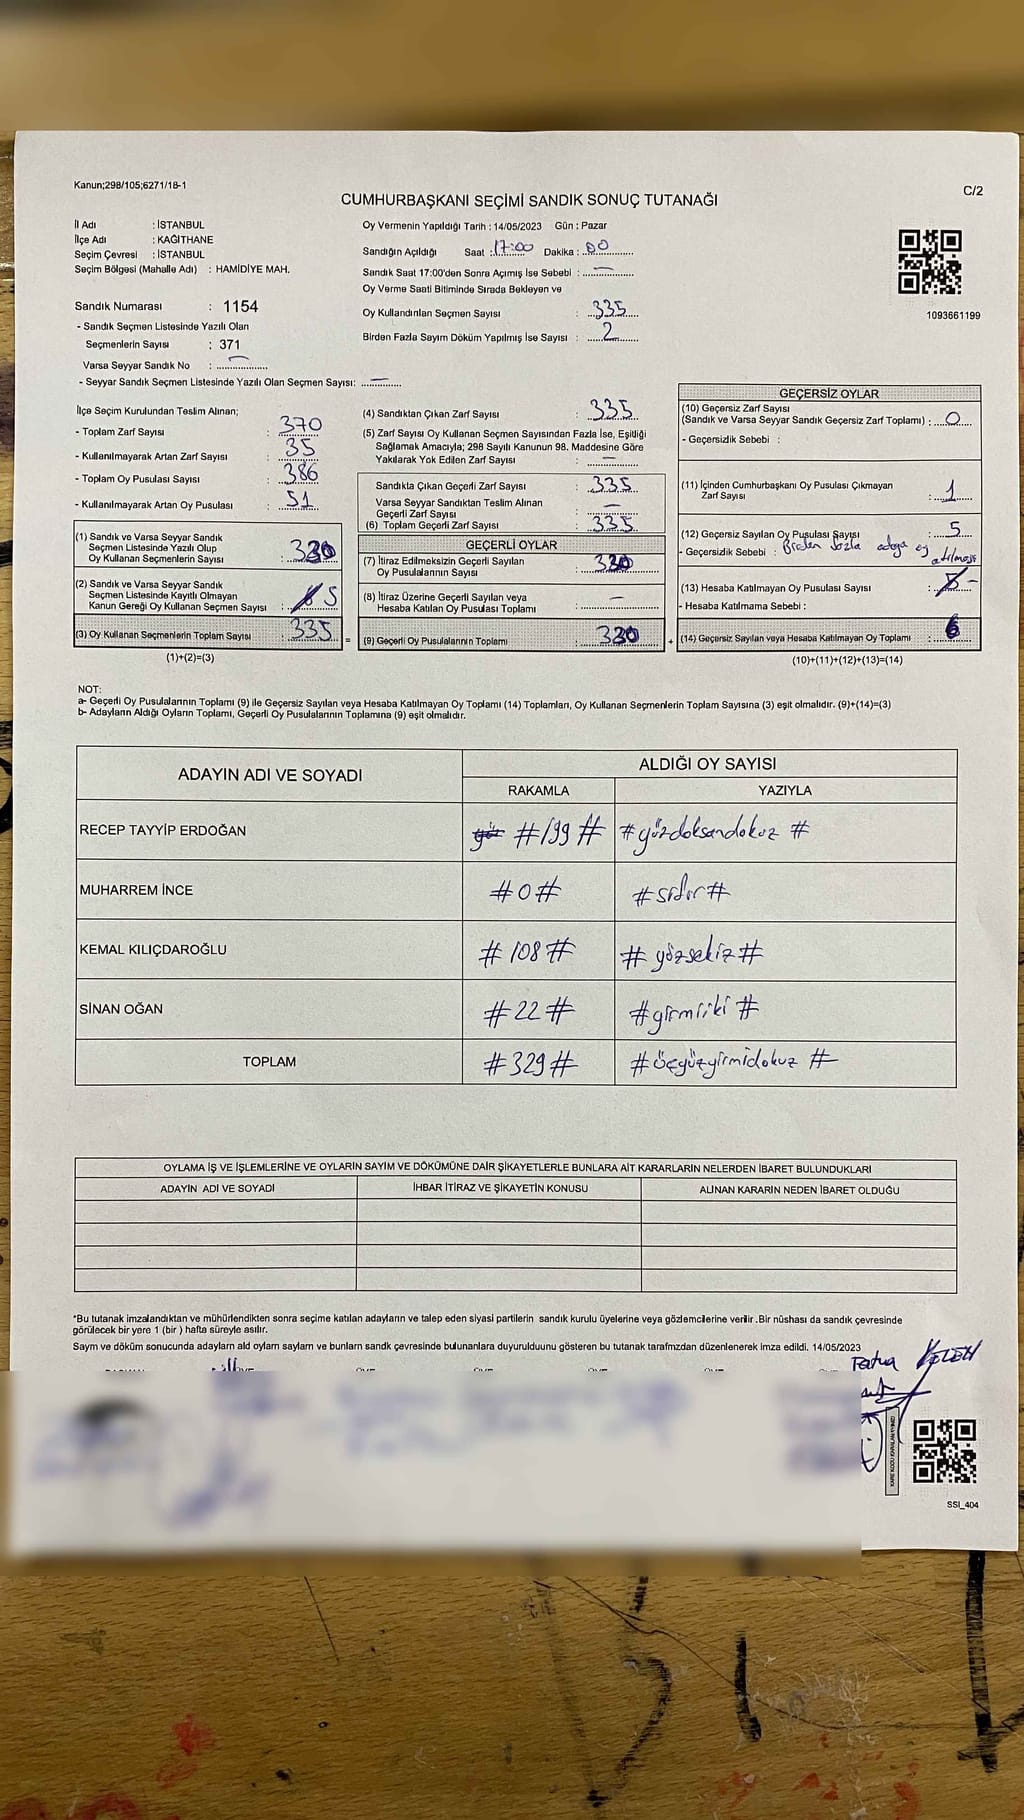 Kanun;298/105;6271/18-1
C/2
CUMHURBAŞKANI SEÇİMİ SANDIK SONUÇ TUTANAĞI
İl Adı : İSTANBUL
İlçe Adı : KAĞITHANE
Seçim Çevresi : İSTANBUL
Seçim Bölgesi (Mahalle Adı) : HAMİDİYE MAH.
Sandık Numarası : 1154
- Sandık Seçmen Listesinde Yazılı Olan
Seçmenlerin Sayısı : 371
Varsa Seyyar Sandık No : —
- Seyyar Sandık Seçmen Listesinde Yazılı Olan Seçmen Sayısı: —
Oy Vermenin Yapıldığı Tarih : 14/05/2023 Gün : Pazar
Sandığın Açıldığı Saat : 17:00 Dakika : 00
Sandık Saat 17:00'den Sonra Açımış İse Sebebi : —
Oy Verme Saati Bitiminde Sırada Bekleyen ve
Oy Kullandırılan Seçmen Sayısı : 335
Birden Fazla Sayım Döküm Yapılmış İse Sayısı : 2
1093661199
İlçe Seçim Kurulundan Teslim Alınan;
- Toplam Zarf Sayısı : 370
- Kullanılmayarak Artan Zarf Sayısı : 35
- Toplam Oy Pusulası Sayısı : 386
- Kullanılmayarak Artan Oy Pusulası : 51
(1) Sandık ve Varsa Seyyar Sandık
Seçmen Listesinde Yazılı Olup
Oy Kullanan Seçmenlerin Sayısı : 330
(2) Sandık ve Varsa Seyyar Sandık
Seçmen Listesinde Kayıtlı Olmayan
Kanun Gereği Oy Kullanan Seçmen Sayısı : 5
(3) Oy Kullanan Seçmenlerin Toplam Sayısı : 335 =
(1)+(2)=(3)
(4) Sandıktan Çıkan Zarf Sayısı : 335
(5) Zarf Sayısı Oy Kullanan Seçmen Sayısından Fazla İse, Eşitliği
Sağlamak Amacıyla; 298 Sayılı Kanunun 98. Maddesine Göre
Yakılarak Yok Edilen Zarf Sayısı : —
Sandıkta Çıkan Geçerli Zarf Sayısı : 335
Varsa Seyyar Sandıktan Teslim Alınan
Geçerli Zarf Sayısı : —
(6) Toplam Geçerli Zarf Sayısı : 335
GEÇERLİ OYLAR
(7) İtiraz Edilmeksizin Geçerli Sayılan
Oy Pusulalarının Sayısı :
(8) İtiraz Üzerine Geçerli Sayılan veya
Hesaba Katılan Oy Pusulası Toplamı : —
(9) Geçerli Oy Pusulalarının Toplamı : +
GEÇERSİZ OYLAR
(10) Geçersiz Zarf Sayısı
(Sandık ve Varsa Seyyar Sandık Geçersiz Zarf Toplamı) : 0
- Geçersizlik Sebebi :
(11) İçinden Cumhurbaşkanı Oy Pusulası Çıkmayan
Zarf Sayısı : 1
(12) Geçersiz Sayılan Oy Pusulası Sayısı : 5
- Geçersizlik Sebebi : Birden fazla adaya oy atılması
(13) Hesaba Katılmayan Oy Pusulası Sayısı : 5 -
- Hesaba Katılmama Sebebi :
(14) Geçersiz Sayılan veya Hesaba Katılmayan Oy Toplamı : 6
(10)+(11)+(12)+(13)=(14)
NOT:
a- Geçerli Oy Pusulalarının Toplamı (9) ile Geçersiz Sayılan veya Hesaba Katılmayan Oy Toplamı (14) Toplamları, Oy Kullanan Seçmenlerin Toplam Sayısına (3) eşit olmalıdır. (9)+(14)=(3)
b- Adayların Aldığı Oyların Toplamı, Geçerli Oy Pusulalarının Toplamına (9) eşit olmalıdır.
ADAYIN ADI VE SOYADI
ALDIĞI OY SAYISI
RAKAMLA YAZIYLA
RECEP TAYYİP ERDOĞAN yüz #199# #yüzdoksandokuz #
MUHARREM İNCE #0# #sıfır#
KEMAL KILIÇDAROĞLU #108# #yüzsekiz#
SİNAN OĞAN #22# #yirmiiki #
TOPLAM #329# #üçyüzyirmidokuz #
OYLAMA İŞ VE İŞLEMLERİNE VE OYLARIN SAYIM VE DÖKÜMÜNE DAİR ŞİKAYETLERLE BUNLARA AİT KARARLARIN NELERDEN İBARET BULUNDUKLARI
ADAYIN ADI VE SOYADI İHBAR İTİRAZ VE ŞİKAYETİN KONUSU ALINAN KARARIN NEDEN İBARET OLDUĞU
*Bu tutanak imzalandıktan ve mühürlendikten sonra seçime katılan adayların ve talep eden siyasi partilerin sandık kurulu üyelerine veya gözlemcilerine verilir .Bir nüshası da sandık çevresinde
görülecek bir yere 1 (bir ) hafta süreyle asılır.
Sayım ve döküm sonucunda adayların ald oyların sayların ve bunların sandk çevresinde bulunanlara duyurulduunu gösteren bu tutanak tarafmzdan düzenlenerek imza edildi. 14/05/2023
Fatma
KARE KODU KARALAMAYINIZ!
SSI_404